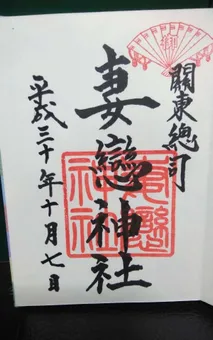 關東總司
妻戀神社
平成三十年十月七日